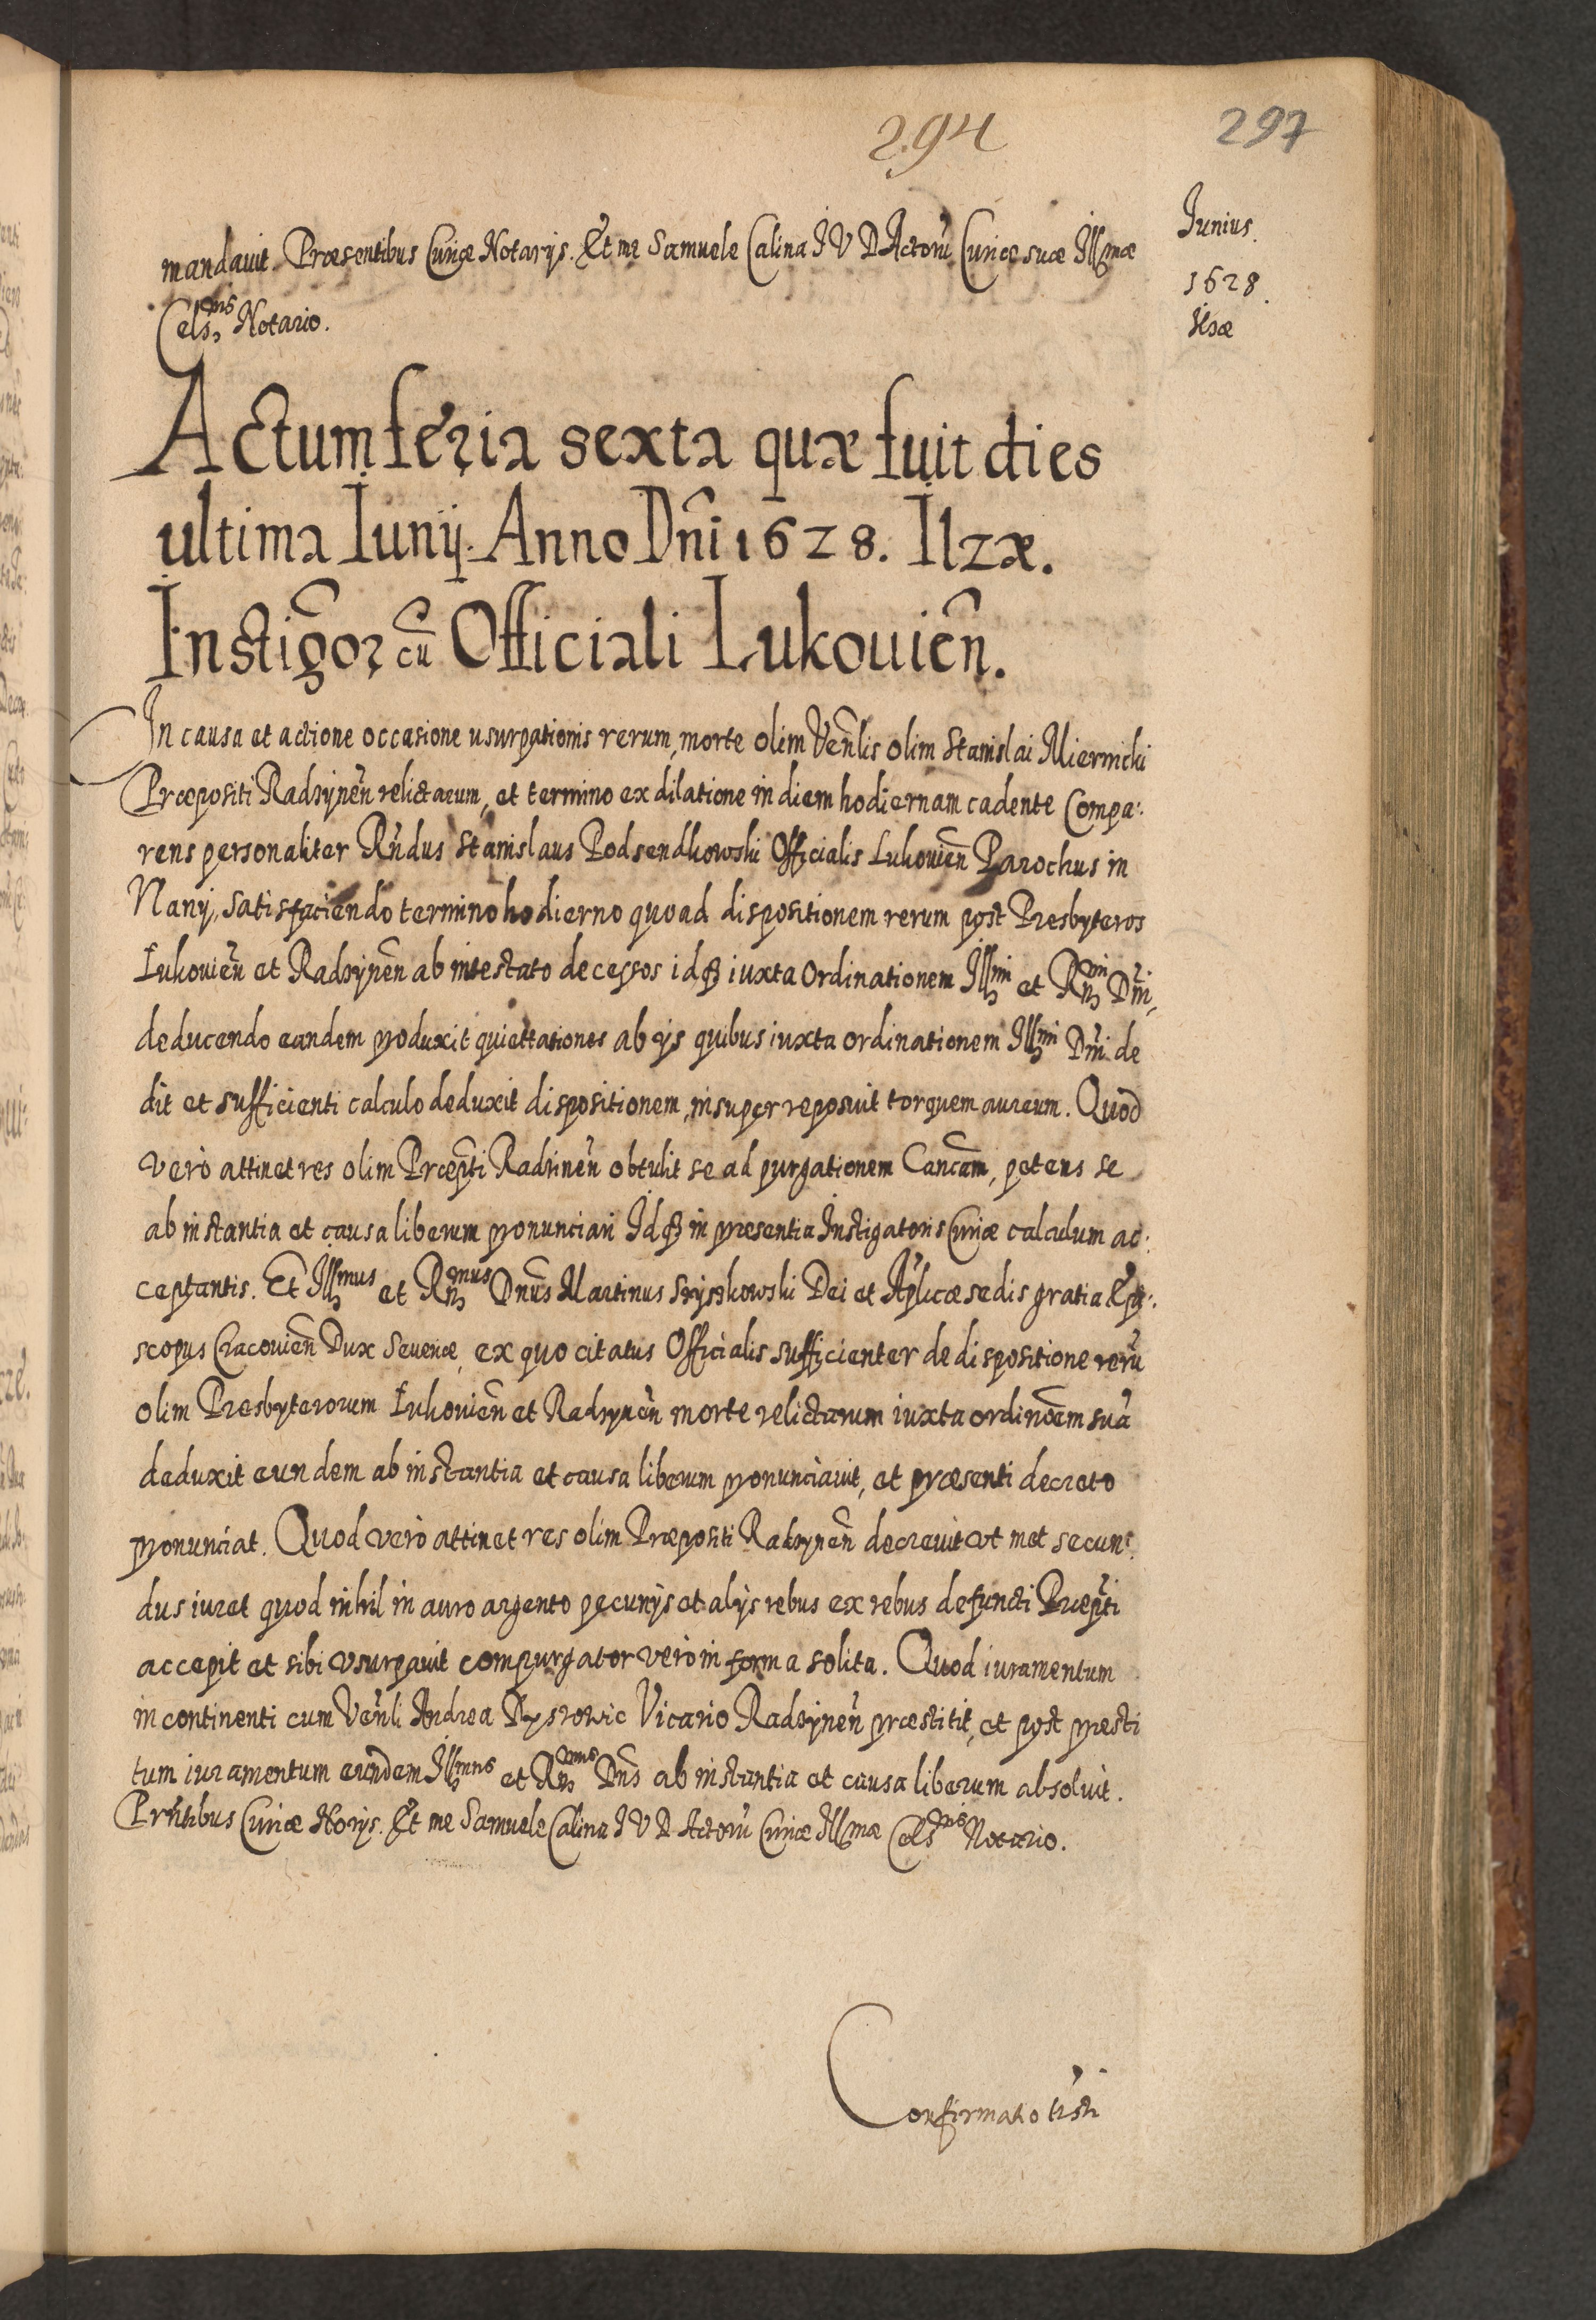 294
297
Junius.
1628.
Ilzæ
mandauit. Præsentibus Curiæ Notarijs. Et me Samuele Calina J V D Actorũ Curiæ suæ Illmæ
Cels.nis Notario.
Actum feria sexta quæ fuit dies
ultima Iunij. Anno Dñi 1628. Ilzæ.
Instigõr cũ Officiali Lukouień.
In causa et actione occasione usurpationis rerum, morte olim Veñlis olim Stanislai Miernicki
Præpositi Radzyneñ relictarum, et termino ex dilatione in diem hodiernam cadente Compa:
rens personaliter Rñdus Stanislaus Podsendkowski Officialis Lukouieñ Parochus in
Nany, satisfaciendo termino hodierno quoad dispositionem rerum post Presbyteros
Lukouieñ et Radzyneñ ab intestato decessos idq3 iuxta Ordinationem Illmi et Rmi Dñi,
deducendo eandem produxit quiettationes ab ijs quibus iuxta ordinationem Illmi Dñi de
dit et sufficienti calculo deduxit dispositionem, insuper reposuit torquem aureum. Quod
verò attinet res olim Præpti Radzineñ obtulit se ad purgationem Cancam, petens se
ab instantia et causa liberum pronunciari Idq3 in presentia Instigatoris Curiæ calculum ac:
ceptantis. Et Illmus et Rmus Dnũs Martinus Szyszkowski Dei et Aplicæ sedis gratia Epi:
scopus Cracouieñ Dux Seueriæ, ex quo citatus Officialis sufficienter de dispositione rerũ
olim Presbyterorum Lukouieñ et Radzyneñ morte relictarum iuxta ordinõem suã
deduxit eundem ab instantia et causa liberum pronunciauit, et præsenti decreto
pronunciat. Quod verò attinet res olim Præpositi Radzyneñ decreuit vt met secun:
dus iuret quod nihil in auro argento pecunijs et alijs rebus ex rebus defuncti Præpti
accepit et sibi vsurpauit compurgator verò in forma solita. Quod iuramentum
in continenti cum Veñli Andrea Vicario Radzyneñ præstitit, et post presti
tum iuramentum eundem Illmus et Rmus Dñs ab instantia et causa liberum absoluit.
Prñtibus Curiæ Norijs. Et me Samuele Calina J V D Actorũ Curiæ Illmæ Cels.nis Notario.
Confirmatio